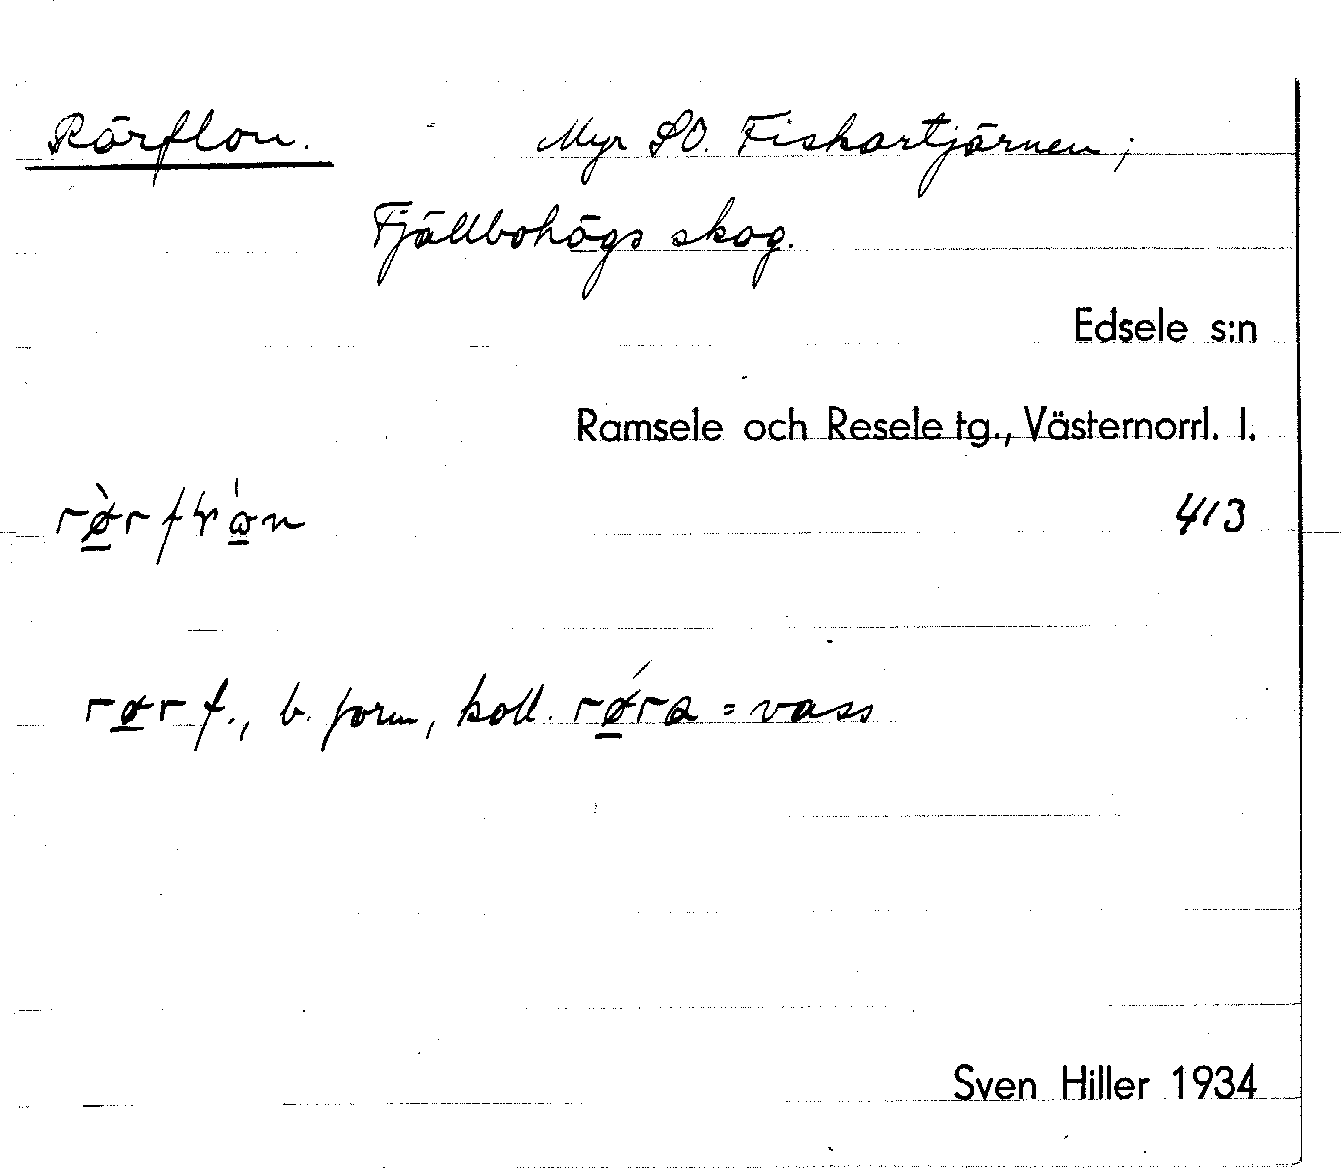 Rörflon. Myr SO. Fiskartjärnen;
Fjällbohögs skog.
Edsele s:n
Ramsele och Resele tg., Västernorrl. l.
413
rør f., b. form, koll. rǿra = vass
Sven Hiller 1934